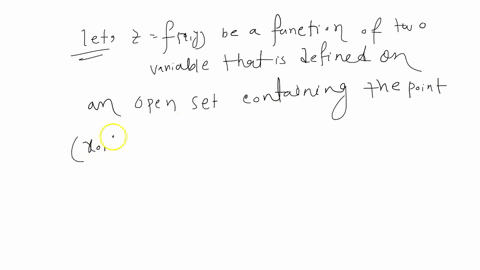 let, z = f(x,y) be a function of two
variable that is defined on
an open set containing the point
(x0,